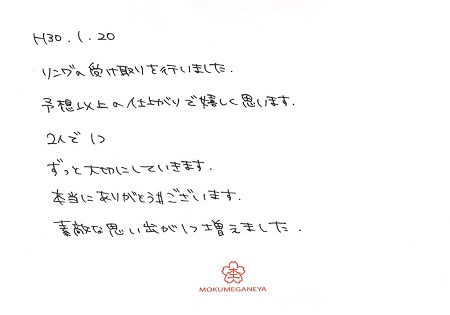 H30.1.20
リングの受け取りを行いました.
予想以上の仕上がりで嬉しく思います.
2人で1つ
ずっと大切にしていきます.
本当にありがとうございます.
素敵な思い出が1つ増えました.
MOKUMEGANEYA